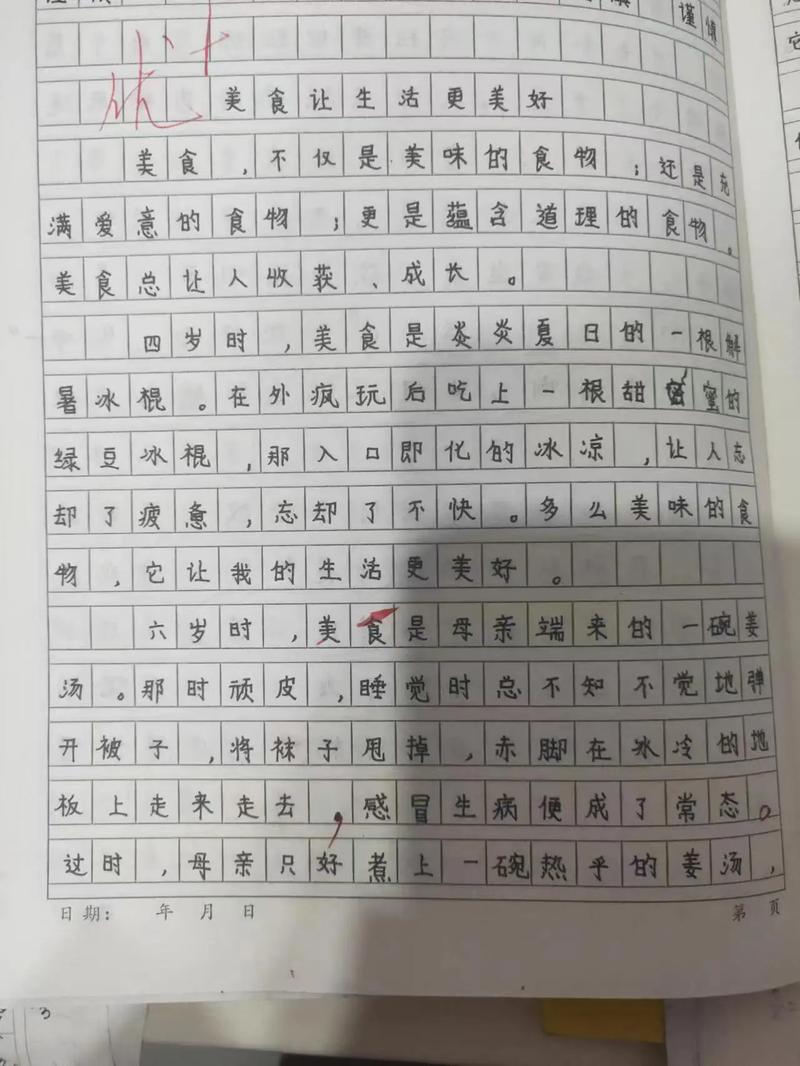 谨慎
优十
美食让生活更美好
美食,不仅是美味的食物;还是充
满爱意的食物;更是蕴含道理的食物。
美食总让人收获、成长。
四岁时,美食是炎炎夏日的一根解
暑冰棍。在外疯玩后吃上一根甜蜜蜜的
绿豆冰棍,那入口即化的冰凉,让人忘
却了疲惫,忘却了不快。多么美味的食
物,它让我的生活更美好。
六岁时,美食是母亲端来的一碗姜
汤。那时顽皮,睡觉时总不知不觉地弹
开被子,将袜子甩掉,赤脚在冰冷的地
板上走来走去,感冒生病便成了常态。
过时,母亲只好煮上一碗热乎的姜汤,
日期: 年 月 日
第 页